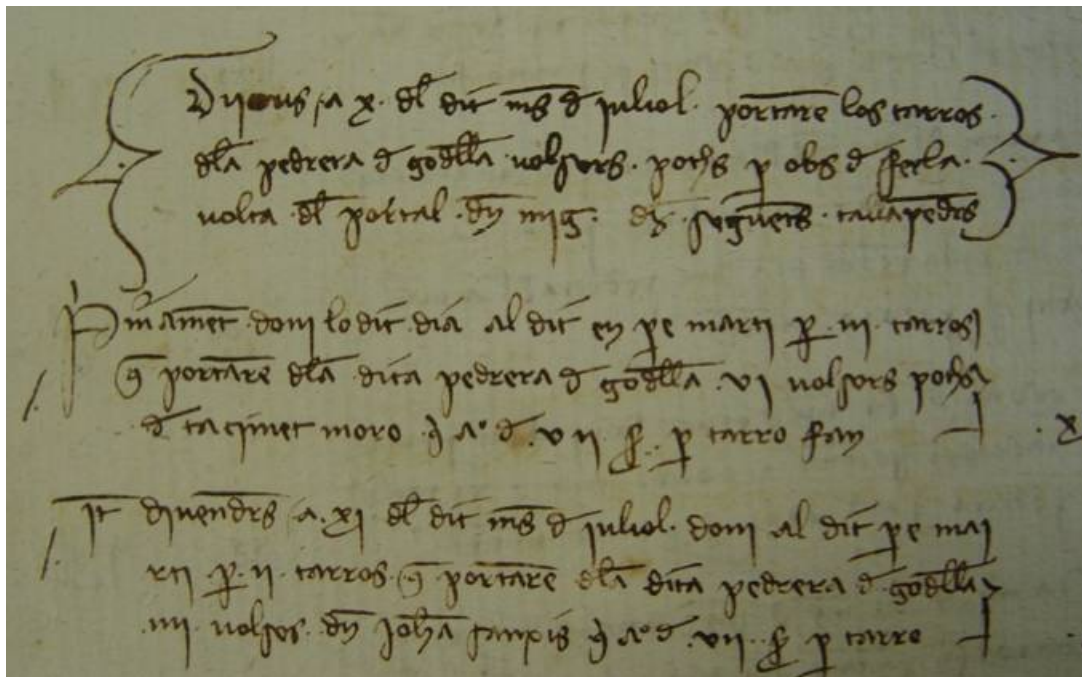 Dijous a x dl dit mes d juliol portare los carros
dla pedrera d godlla volsors pochs p obs d fer la
volta dl portal dn mig segvents cavapedrs
Primament doni lo dit dia al dit en pe marti p iii carros
q portare dla dita pedrera d godlla vi volsors pochs
d moro a d vii p carro fan
It divendrs a xi dl dit mes d juliol doni al dit pe mar
rti p ii carros q portare dla dita pedrera d godlla
iiii volsos dn joha sanxis a d vii p carro